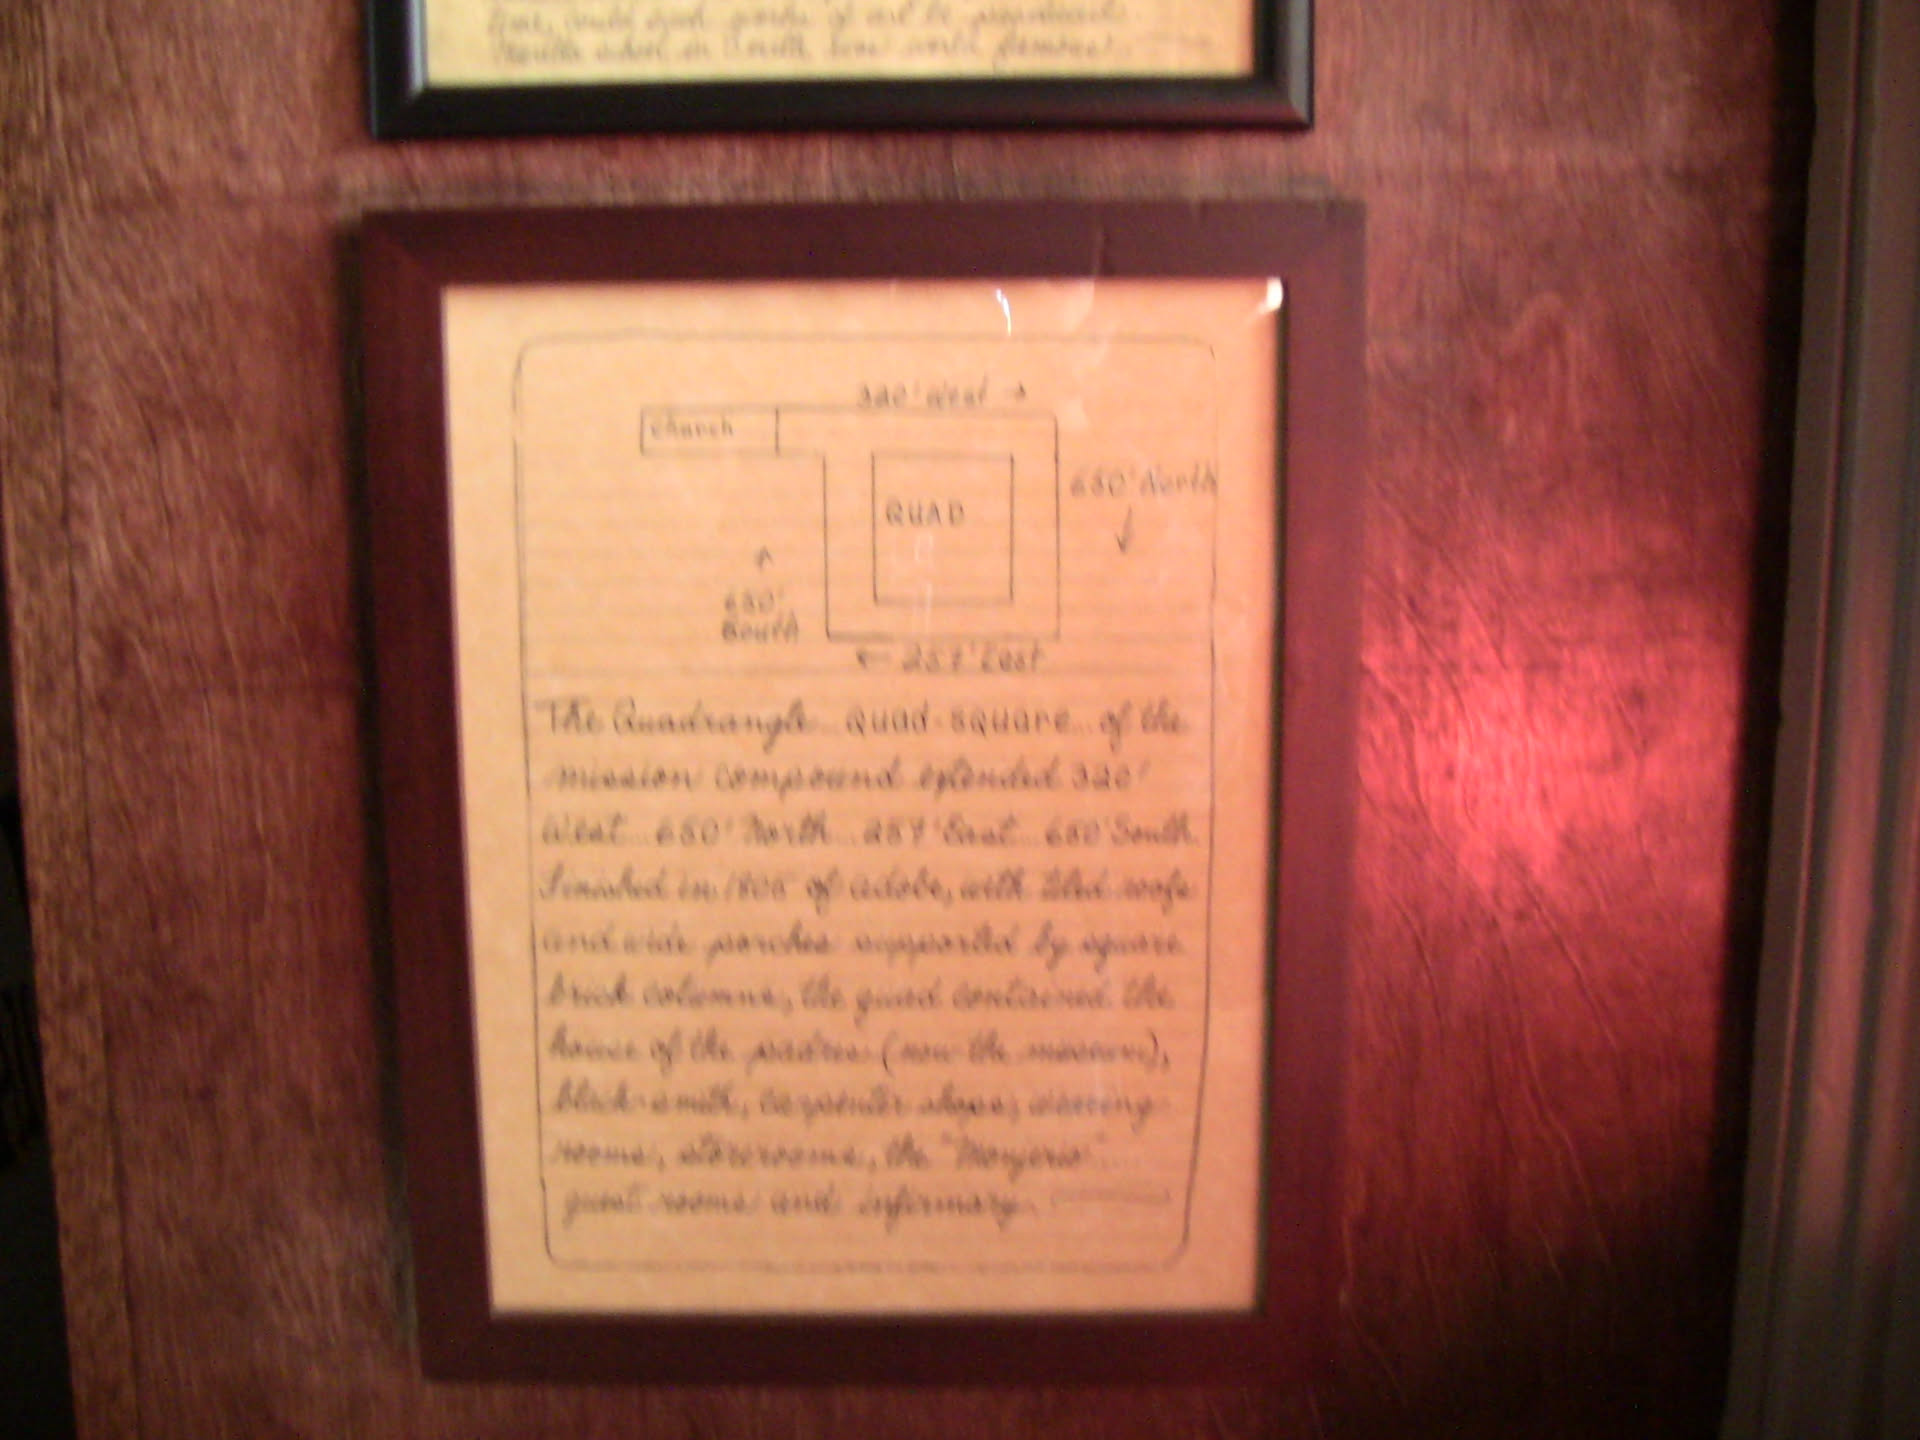 could such works of art be
in world famous
320' West →
Church
650' North
QUAD
650'
South
← 257' East
The Quadrangle .. quad-square .. of the
mission compound extended 320'
West .. 650' North .. 257' East .. 650' South.
Finished in 1805 of adobe, with tiled roofs
and wide porches supported by square
brick columns, the quad contained the
house of the padres (now the museum),
black-smith, carpenter shops, weaving
rooms, storerooms, the "Monjerio" ....
guest rooms and infirmary.